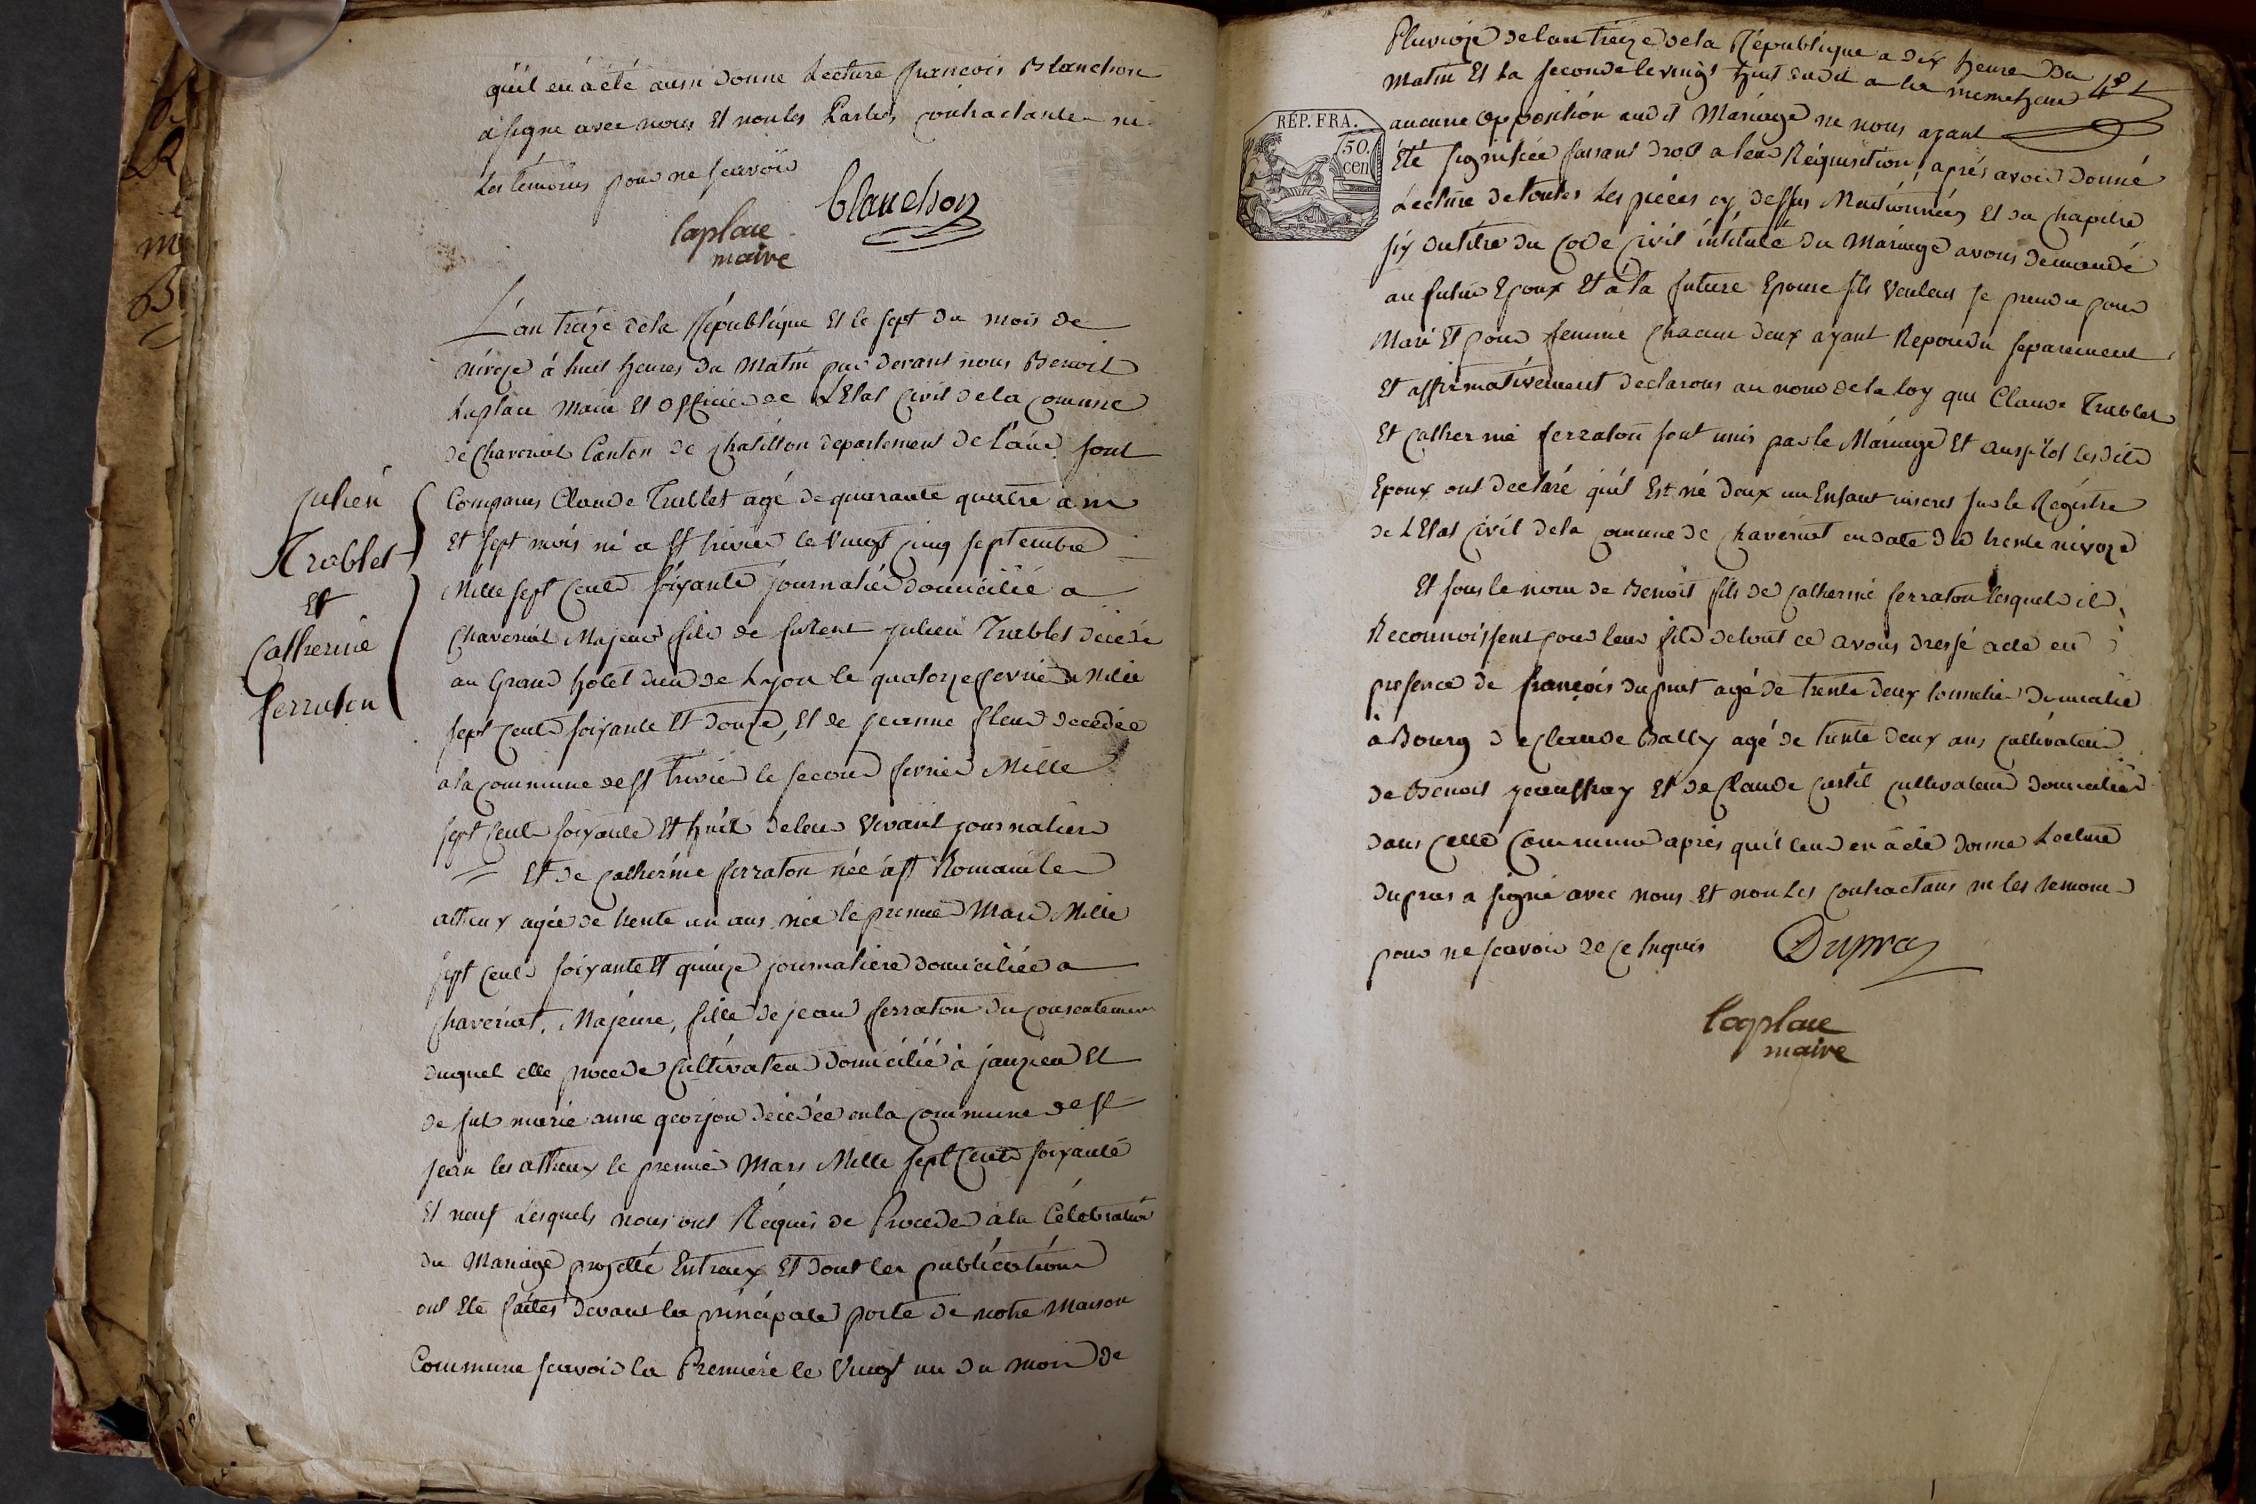 qu'il en à été aussi donné Lecture francois Blanchon
à signé avec nous Et non les Parties contractantes ni
Les témoins pour ne scavoir
Blanchon
laplace
maire
L'an treize de la République Et le sept du mois de
nivoze à huit heures du Matin par devant nous Benoit
Laplace Maire Et officier de L'Etat Civil de la Comune
de Chaveriat Canton de chatillon departement de L'ain sont
julien
Trablet
Et
Catherine
ferraton
Comparus Claude Trablet agé de quarante quatre ans
Et sept mois né a St trivier le vingt cinq septembre
Mille sept Cent soixante journalier domicilié a
Chaveriat Majeur fils de julien Trablet décédé
au Grand hotel dieu de Lyon le quatorze fevrier Mille
sept Cent soixante Et douze, Et de jeanne fleur decedée
a la commune de St trivier le second fevrier Mille
sept Cent soixante Et huit de leur vivant journaliers
Et de Catherine ferraton née à St Romain les
atheux agée de trente un ans née le premier Mars Mille
sept Cent soixante Et quinze journaliere domiciliée a
Chaveriat, Majeure, fille de jean ferraton du consentement
duquel elle procede Cultivateur domicilié à janzieu Et
de fut marie anne georjon décédée en la commune de St
jean les atheux le premier Mars Mille sept Cent soixante
Et neuf Lesquels nous ont Réquis de Proceder à la Célébration
du Mariage projetté Entreux Et dont les publications
ont Eté faites devant la principale porte de notre Maison
Commune scavoir la Premiére le vingt un du mois de
Pluvioze de l'an treize de la République a dix heures du
Matin Et la seconde le vingt huit dudit a la meme heure
aucune opposition audit Mariage ne nous ayant
RÉP. FRA.
50.
cen
Eté signifiée faisant droit a leur Réquisition, aprés avoir donné
Lecture de toutes Les piéces cy dessus Mentionnées Et du chapitre
six du titre du Code Civil intitulé du Mariage avons demandé
au futur Epoux Et à la future Epouse sils veulent se prendre pour
Mari Et pour femme chacun deux ayant Repondu separement
Et affirmativement declarons au nom de la loy que Claude Trablet
Et Catherine ferraton sont unis par le Mariage Et aussitot lesdits
Epoux ont declaré quil Est né deux un Enfant inscrit sur le Régistre
de L'Etat Civil de la comune de Chaveriat en date du trente nivoze
Et sous le nom de Benoit fils de Catherine ferraton lesquels
Reconnoissent pour leur fils de tout ce avons dressé acte en
presence de françois duprat agé de trente deux domicilié
à Bourg de Claude Bally agé de trente deux ans cultivateur
de Benoit Et de Claude cultivateurs domiciliés
dans Cette Commune aprés qu'il leur en à été donné Lecture
dupras a signé avec nous Et non Les contractans ni les temoins
pour ne scavoir de ce Inquis
Dupras
laplace
maire